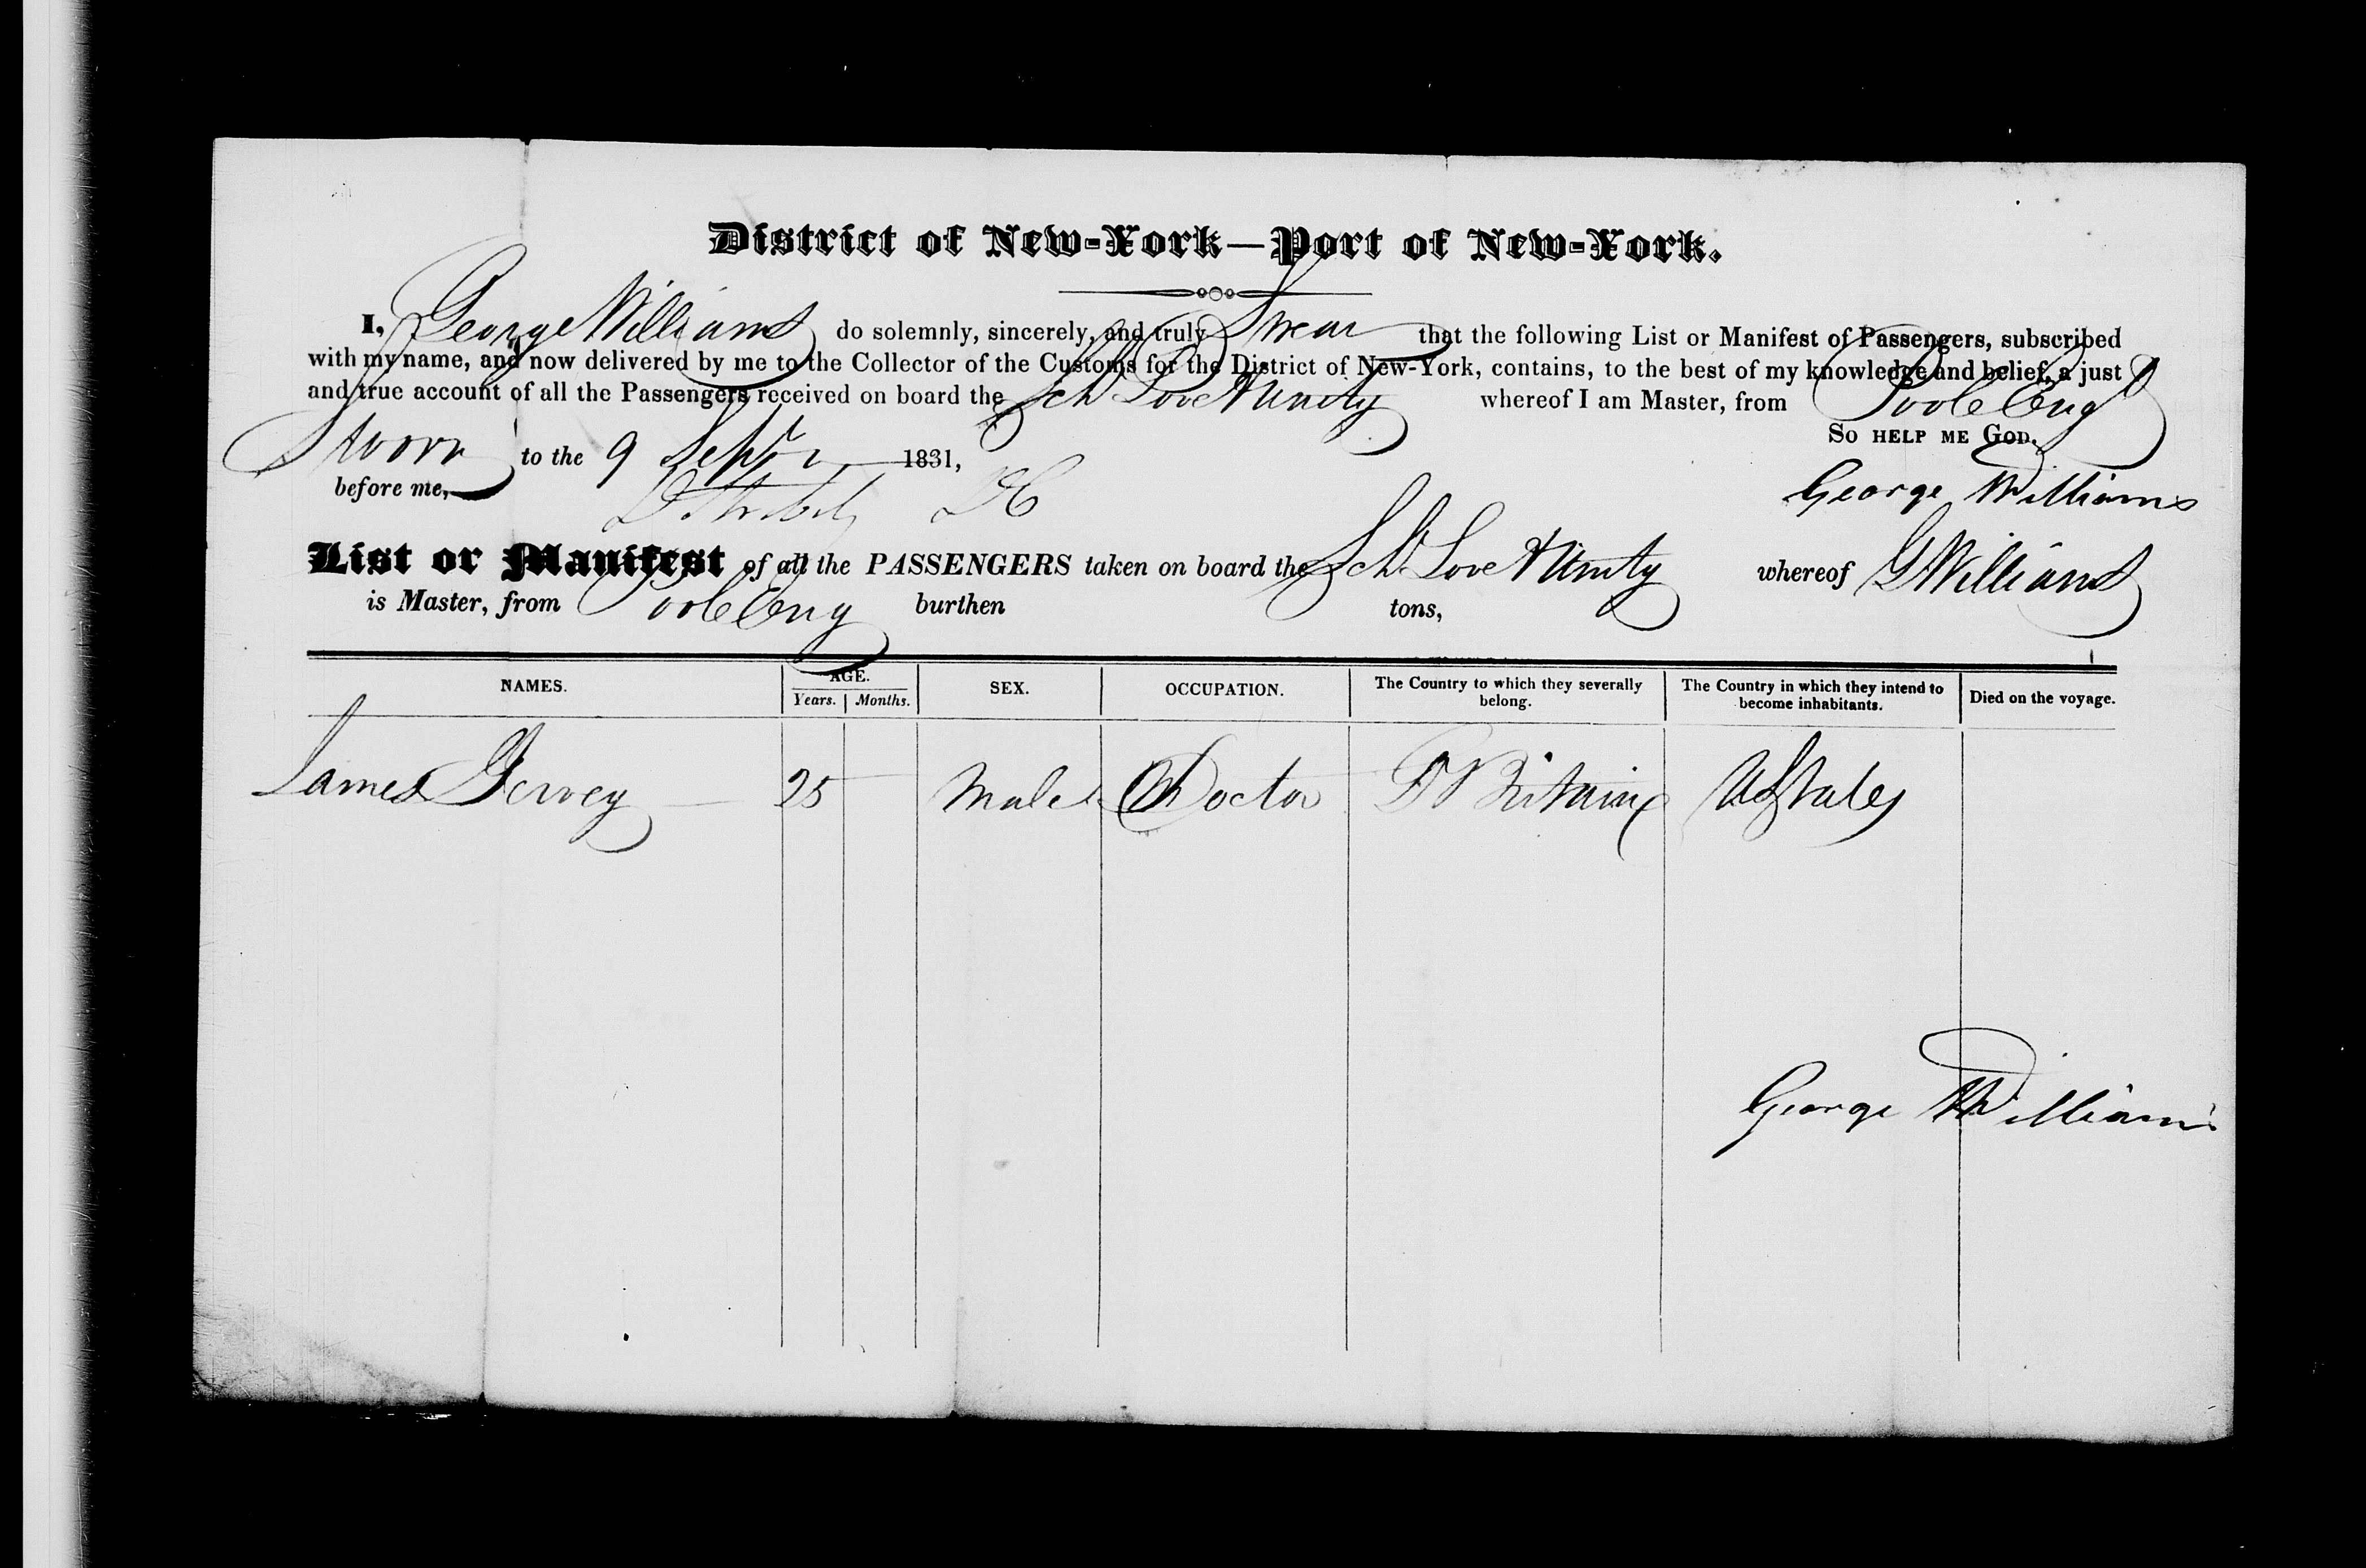 District of New-York—Port of New-York.
I, George Williams do solemnly, sincerely, and truly Swear that the following List or Manifest of Passengers, subscribed
with my name, and now delivered by me to the Collector of the Customs for the District of New-York, contains, to the best of my knowledge and belief, a just
and true account of all the Passengers received on board the Sch Love & Unity whereof I am Master, from Poole Eng
So HELP ME GOD.
Sworn to the 9 Septr 1831,
before me,
George Williams
List or Manifest of all the PASSENGERS taken on board the Sch Love & Unity whereof G Williams
is Master, from Poole Eng burthen tons,
NAMES. AGE. Years. Months. SEX. OCCUPATION. The Country to which they severally belong. The Country in which they intend to become inhabitants. Died on the voyage.
James 25 Male Doctor G Britain U States
George Williams